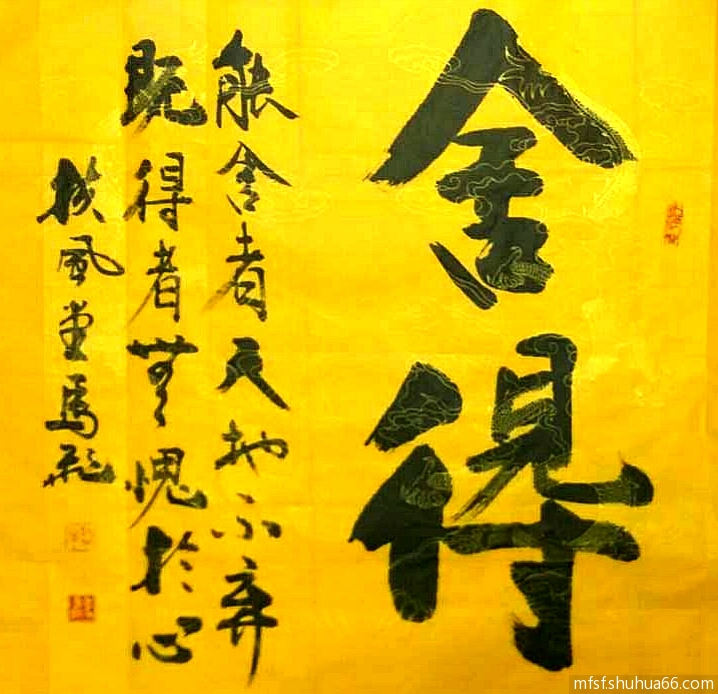 舍得
能舍者天地不弃
既得者無愧於心
扶風堂馬飛
mfsf.shuhua66.com